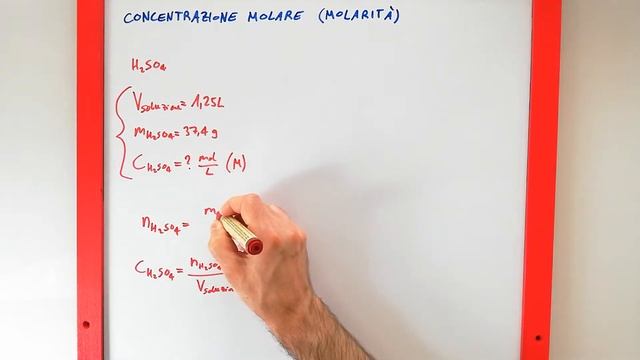 CONCENTRAZIONE MOLARE (MOLARITÀ)
H₂SO₄
Vsoluzione = 1,25L
mH₂SO₄ = 37,4 g
CH₂SO₄ = ? mol/L (M)
nH₂SO₄ = m
CH₂SO₄ = nH₂SO₄
Vsoluzi